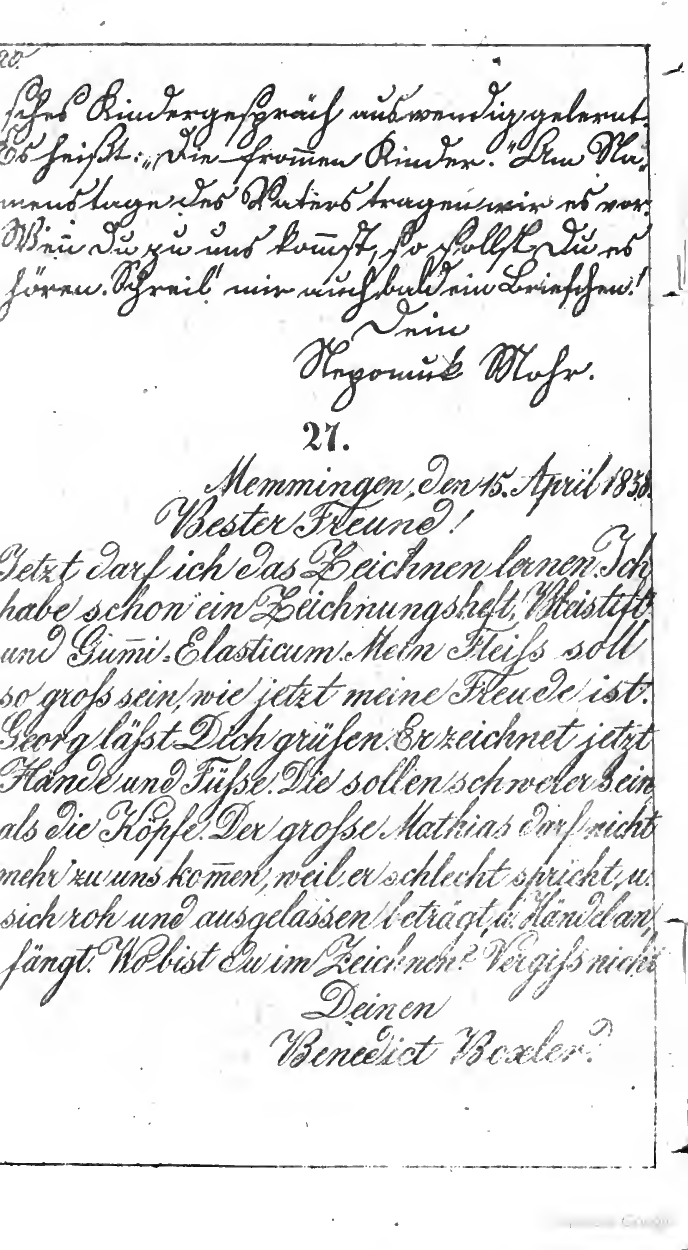 20.
sches Kindergespräch auswendig gelernt.
Es heißt: „Die from̄en Kinder." Am Na-
menstage des Vaters tragen wir es vor.
Wen̄ Du zu uns kom̄st, so sollst Du es
hören. Schreib' mir auch bald ein Briefchen!
Dein
Nepomuk Mohr.
27.
Memmingen, den 15. April 1838.
Bester Freund!
Jetzt darf ich das Zeichnen lernen. Ich
habe schon ein Zeichnungsheft, Bleistift
und Gum̄i-Elasticum. Mein Fleiſs soll
so groſs sein, wie jetzt meine Freude ist.
Georg läſst Dich grüſen. Er zeichnet jetzt
Hände und Füſse. Die sollen schwerer sein
als die Köpfe. Der groſse Mathias darf nicht
mehr zu uns kom̄en, weil er schlecht spricht, u.
sich roh und ausgelassen beträgt, u. Händel an-
fängt. Wo bist Du im Zeichnen? Vergiſs nicht
Deinen
Benedict Boxler.